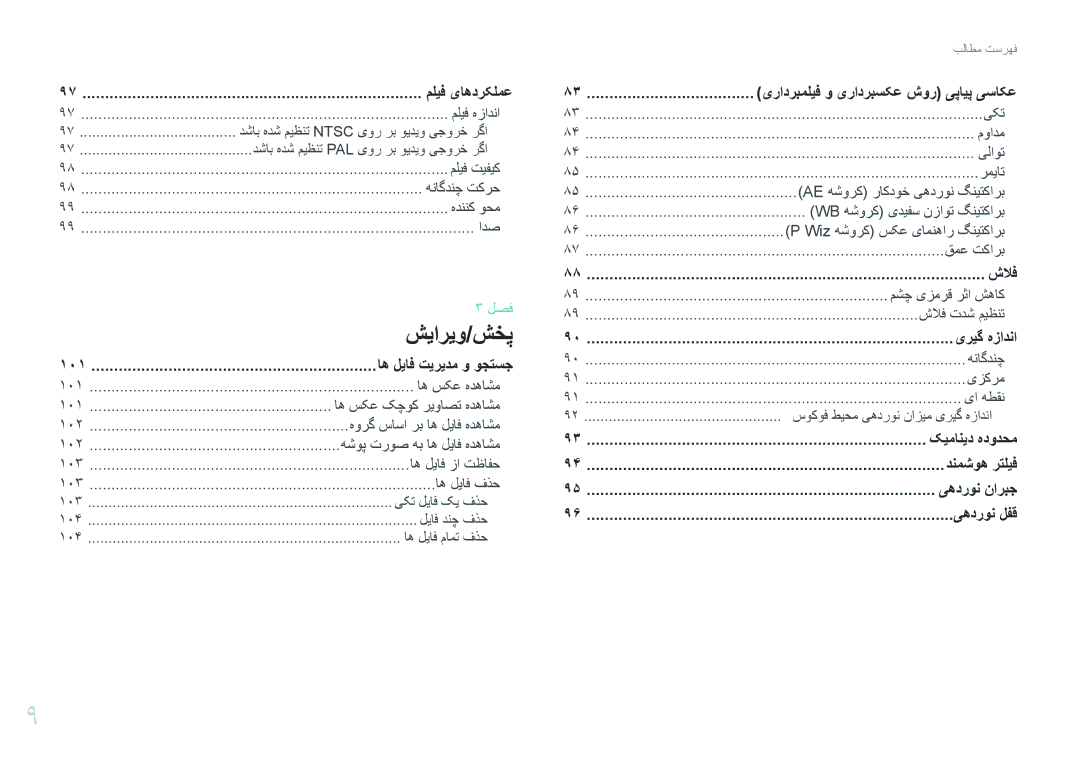 فهرست مطالب
عکاسی پیاپی (روش عکسبرداری و فیلمبرداری) ..................................... ۸۳
تکی ..................................... ۸۳
مداوم ..................................... ۸۴
توالی ..................................... ۸۴
تایمر ..................................... ۸۵
براکتینگ نوردهی خودکار (کروشه AE) ..................................... ۸۵
براکتینگ توازن سفیدی (کروشه WB) ..................................... ۸۶
براکتینگ راهنمای عکس (کروشه P Wiz) ..................................... ۸۶
براکت عمق ..................................... ۸۷
فلاش ..................................... ۸۸
کاهش اثر قرمزی چشم ..................................... ۸۹
تنظیم شدت فلاش ..................................... ۸۹
اندازه گیری ..................................... ۹۰
چندگانه ..................................... ۹۰
مرکزی ..................................... ۹۱
نقطه ای ..................................... ۹۱
اندازه گیری میزان نوردهی محیط فوکوس ..................................... ۹۲
محدوده دینامیک ..................................... ۹۳
فیلتر هوشمند ..................................... ۹۴
جبران نوردهی ..................................... ۹۵
قفل نوردهی ..................................... ۹۶
عملکردهای فیلم ..................................... ۹۷
اندازه فیلم ..................................... ۹۷
اگر خروجی ویدیو بر روی NTSC تنظیم شده باشد ..................................... ۹۷
اگر خروجی ویدیو بر روی PAL تنظیم شده باشد ..................................... ۹۷
کیفیت فیلم ..................................... ۹۸
حرکت چندگانه ..................................... ۹۸
محو کننده ..................................... ۹۹
صدا ..................................... ۹۹
فصل ۳
پخش/ویرایش
جستجو و مدیریت فایل ها ..................................... ۱۰۱
مشاهده عکس ها ..................................... ۱۰۱
مشاهده تصاویر کوچک عکس ها ..................................... ۱۰۱
مشاهده فایل ها بر اساس گروه ..................................... ۱۰۲
مشاهده فایل ها به صورت پوشه ..................................... ۱۰۲
حفاظت از فایل ها ..................................... ۱۰۳
حذف فایل ها ..................................... ۱۰۳
حذف یک فایل تکی ..................................... ۱۰۳
حذف چند فایل ..................................... ۱۰۴
حذف تمام فایل ها ..................................... ۱۰۴
۹